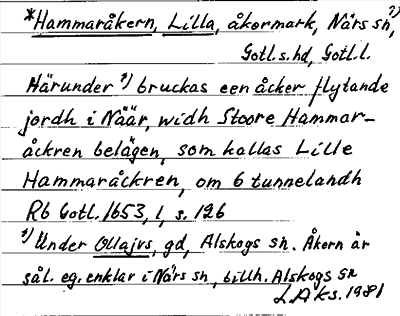 *Hammaråkern, Lilla, åkermark, Närs sn, 1)
Gotl.s.hd, Gotl.l.
Härunder 1) bruckas een åcker flytande
jordh i Nähr, widh Stoore Hammar-
åckren belägen, som kallas Lille
Hammaråckren, om 6 tunnelandh
Rb Gotl. 1653, 1, s. 126
1) Under Ollajvs, gd, Alskogs sn. Åkern är
sål. eg. enklav i Närs sn, tillh. Alskogs sn
L.A ks. 1981